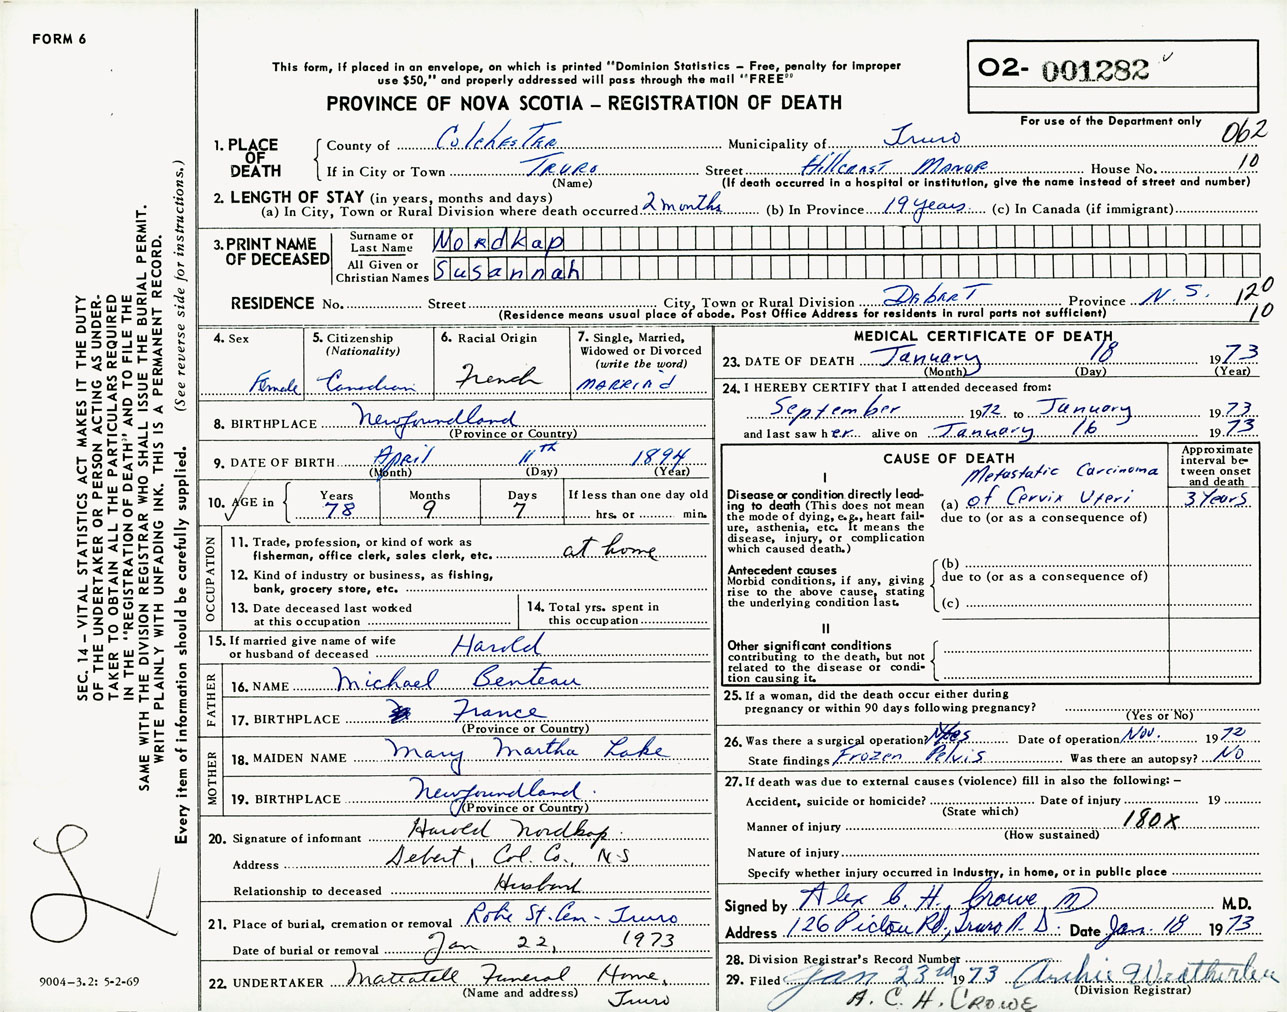 FORM 6
This form, if placed in an envelope, on which is printed "Dominion Statistics – Free, penalty for improper
use $50," and properly addressed will pass through the mail "FREE"
PROVINCE OF NOVA SCOTIA – REGISTRATION OF DEATH
O2- 001282
For use of the Department only
062
1. PLACE OF DEATH
County of Colchester Municipality of Truro
If in City or Town Truro Street Hillcrest Manor House No. 10
(Name) (If death occurred in a hospital or institution, give the name instead of street and number)
2. LENGTH OF STAY (in years, months and days)
(a) In City, Town or Rural Division where death occurred 2 months (b) In Province 19 years (c) In Canada (if immigrant)
3. PRINT NAME OF DECEASED
Surname or Last Name Nordkap
All Given or Christian Names Susannah
RESIDENCE No. Street City, Town or Rural Division Debert Province N.S. 120
(Residence means usual place of abode. Post Office Address for residents in rural parts not sufficient) 10
4. Sex Female
5. Citizenship (Nationality) Canadian
6. Racial Origin French
7. Single, Married, Widowed or Divorced (write the word) MARRIED
8. BIRTHPLACE Newfoundland
(Province or Country)
9. DATE OF BIRTH April 11th 1894
(Month) (Day) (Year)
10. AGE in Years 78 Months 9 Days 7 If less than one day old hrs. or min.
OCCUPATION
11. Trade, profession, or kind of work as
fisherman, office clerk, sales clerk, etc. at home
12. Kind of industry or business, as fishing,
bank, grocery store, etc.
13. Date deceased last worked
at this occupation
14. Total yrs. spent in
this occupation
15. If married give name of wife
or husband of deceased Harold
FATHER
16. NAME Michael Benteau
17. BIRTHPLACE France
(Province or Country)
MOTHER
18. MAIDEN NAME Mary Martha Lake
19. BIRTHPLACE Newfoundland
(Province or Country)
20. Signature of informant Harold Nordkap
Address Debert, Col. Co., N.S
Relationship to deceased Husband
21. Place of burial, cremation or removal Robie St. Cem - Truro
Date of burial or removal Jan 22, 1973
22. UNDERTAKER Mattatall Funeral Home,
(Name and address) Truro
MEDICAL CERTIFICATE OF DEATH
23. DATE OF DEATH January 18 1973
(Month) (Day) (Year)
24. I HEREBY CERTIFY that I attended deceased from:
September 1972 to January 1973
and last saw her alive on January 16 1973
CAUSE OF DEATH
Approximate interval between onset and death
I
Disease or condition directly leading to death (This does not mean the mode of dying, e.g., heart failure, asthenia, etc. It means the disease, injury, or complication which caused death.)
Metastatic Carcinoma
(a) of Cervix Uteri 3 years
due to (or as a consequence of)
Antecedent causes
Morbid conditions, if any, giving rise to the above cause, stating the underlying condition last.
(b)
due to (or as a consequence of)
(c)
II
Other significant conditions
contributing to the death, but not related to the disease or condition causing it.
25. If a woman, did the death occur either during
pregnancy or within 90 days following pregnancy?
(Yes or No)
26. Was there a surgical operation? Yes Date of operation Nov. 1972
State findings Frozen Pelvis Was there an autopsy? No
27. If death was due to external causes (violence) fill in also the following: –
Accident, suicide or homicide? Date of injury 19
(State which)
Manner of injury 180x
(How sustained)
Nature of injury
Specify whether injury occurred in Industry, in home, or in public place
Signed by Alex C. H. Crowe MD M.D.
Address 126 Pictou Rd, Truro R. D. Date Jan. 18 1973
28. Division Registrar's Record Number
29. Filed Jan 23rd 1973 Archie
(Division Registrar)
A. C. H. CROWE
SEC. 14 – VITAL STATISTICS ACT MAKES IT THE DUTY
OF THE UNDERTAKER OR PERSON ACTING AS UNDER-
TAKER TO OBTAIN ALL THE PARTICULARS REQUIRED
IN THE "REGISTRATION OF DEATH" AND TO FILE THE
SAME WITH THE DIVISION REGISTRAR WHO SHALL ISSUE THE BURIAL PERMIT.
WRITE PLAINLY WITH UNFADING INK. THIS IS A PERMANENT RECORD.
Every item of information should be carefully supplied. (See reverse side for instructions.)
9004-3.2: 5-2-69